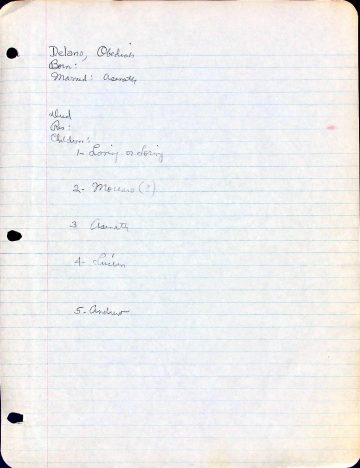 Delano, Obediah
Born:
Married: Asenath
Died
Res:
Children:
1- Loring or Soring
2- Moreno (?)
3 Asenath
4- Lucien
5- Andrew